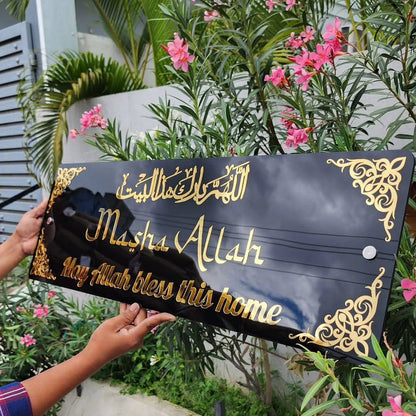 اللهم بارك هذا البيت
Masha Allah
May Allah bless this home